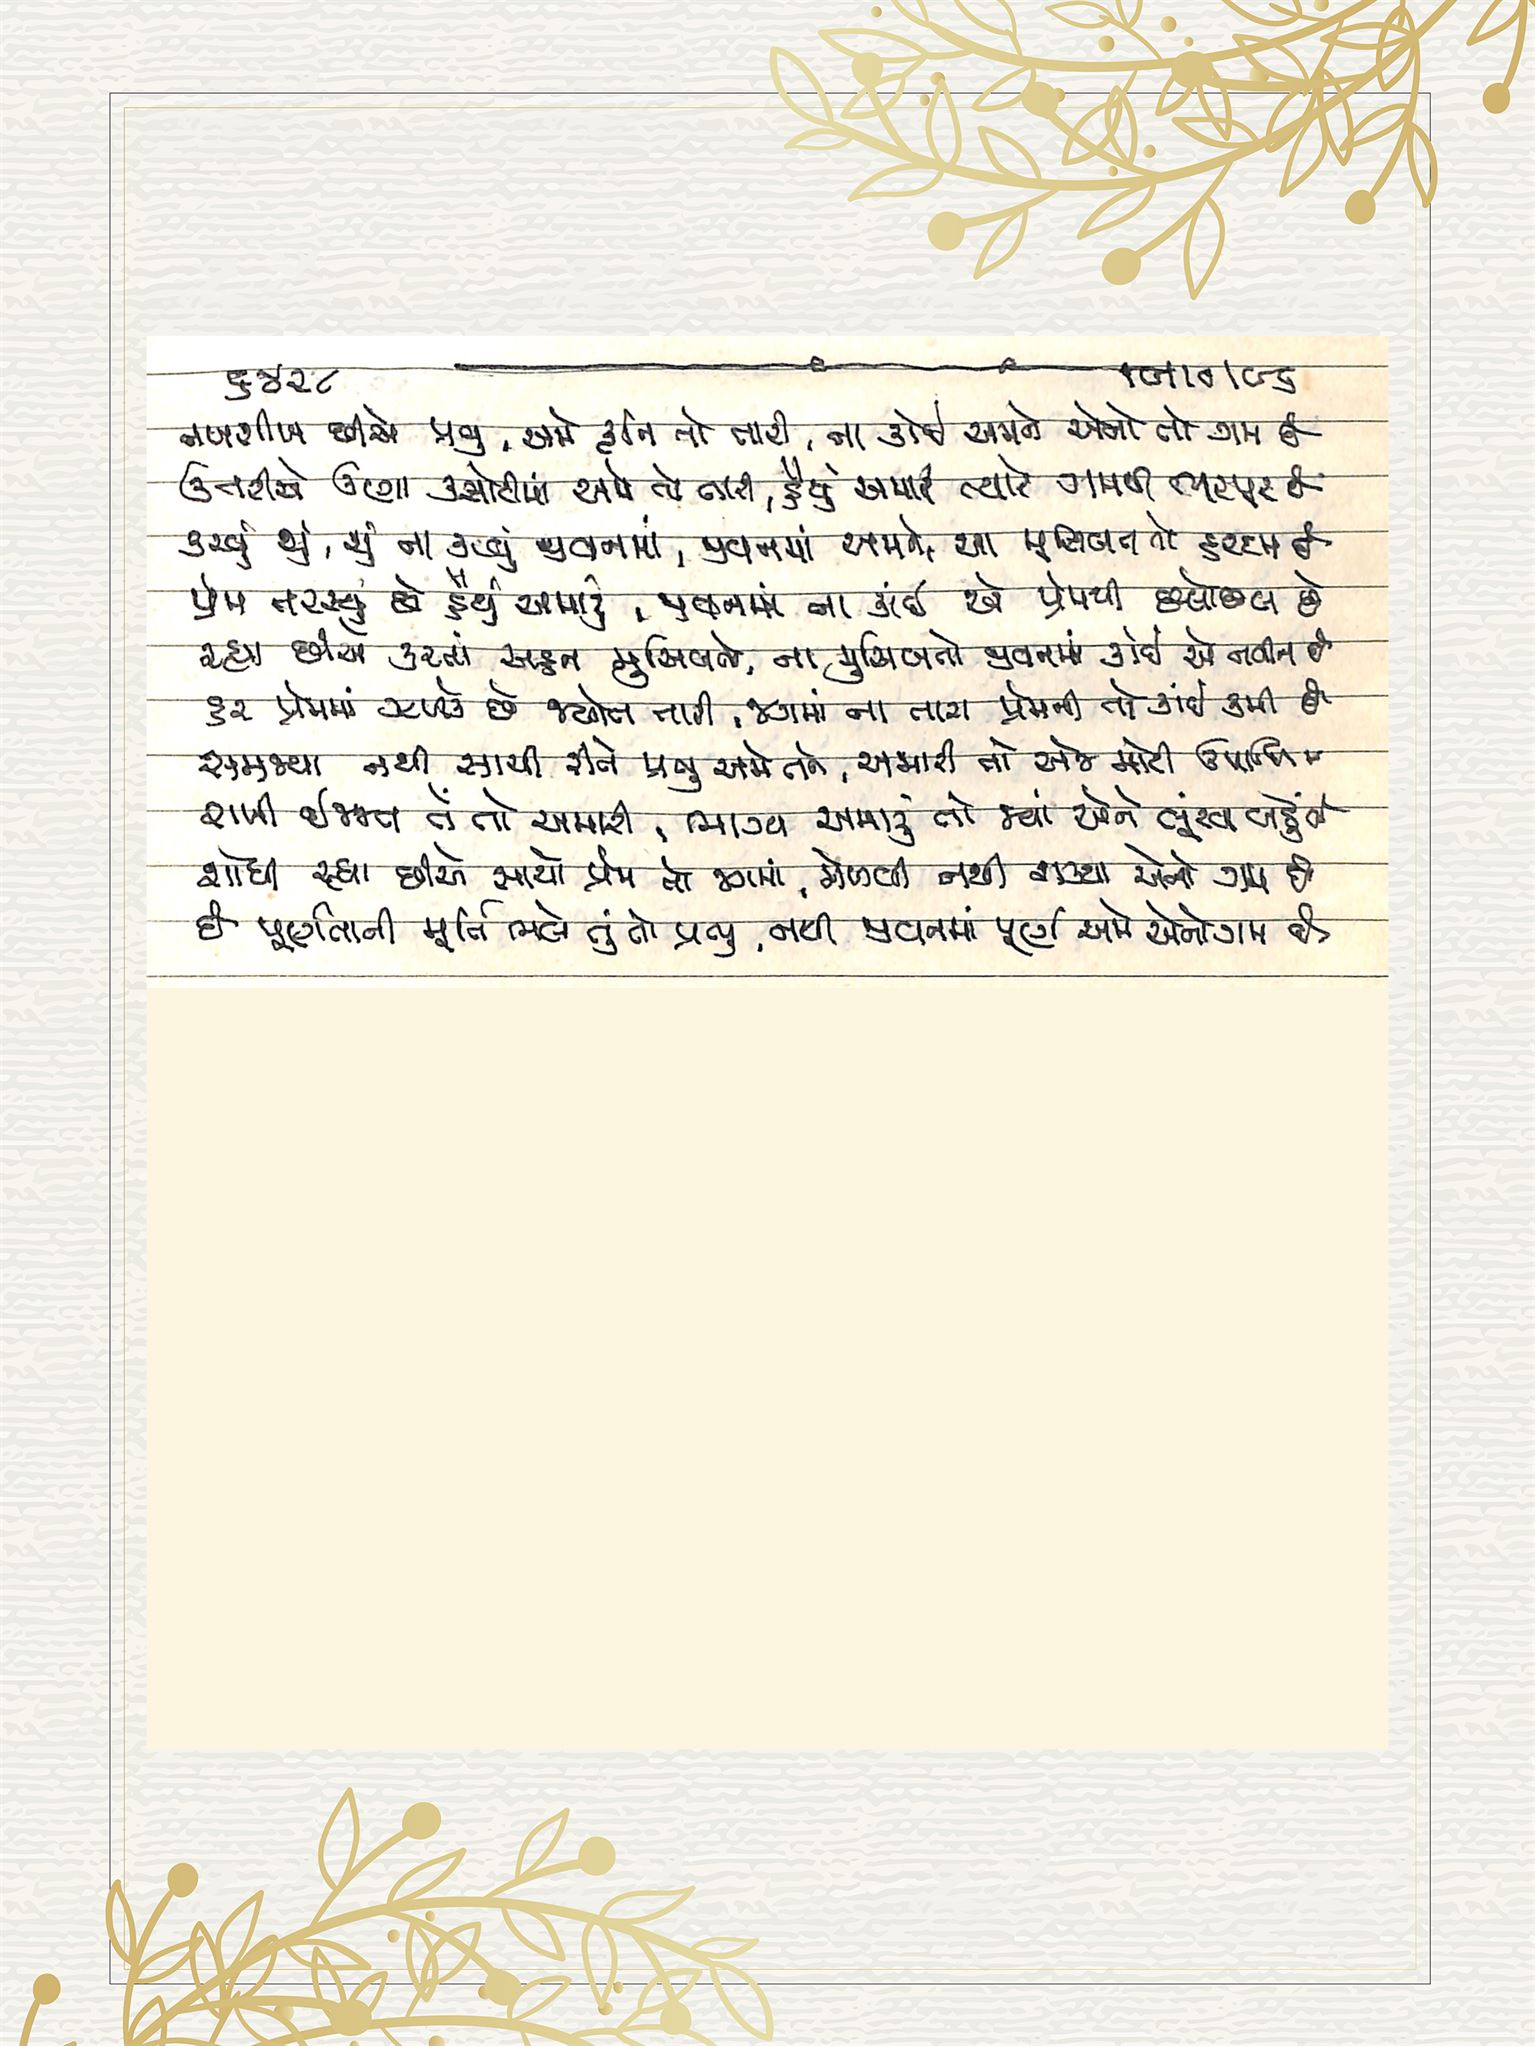 ૬૪૨૮
નખશીખ છીએ પ્રભુ, અમે કૃતિ તો તારી, ના કોઈ અમને એનો તો ગમ છે
ઉતરીએ ઉણા કસોટીમાં અમે તો તારી, હૈયું અમારું ત્યારે ગમથી ભરપૂર છે
કરવું શું, શું ના કરવું જીવનમાં, જીવનમાં અમને, આ મુસિબત તો હરદમ છે
પ્રેમ તરસ્યું છે હૈયું અમારું, જીવનમાં ના કાંઈ એ પ્રેમથી છલોછલ છે
રહ્યા છીએ કરતાં સહન મુસિબતો, ના મુસિબતો જીવનમાં કોઈ એ નવીન છે
હર પ્રેમમાં ઝળકે છે જ્યોત તારી, જગમાં ના તારા પ્રેમની તો કાંઈ કમી છે
સમજ્યા નથી સાચી રીતે પ્રભુ અમે તને, અમારી તો એજ મોટી ઉપાધિ છે
રાખી ઈજ્જત તેં તો અમારી, ભાગ્ય અમારું તો જ્યાં એને
શોધી રહ્યા છીએ સાચો પ્રેમ તો જગમાં, મેળવી નથી શક્યા એનો ગમ છે
છે પૂર્ણતાની મૂર્તિ ભલે તું તો પ્રભુ, નથી જીવનમાં પૂર્ણ અમે એનો ગમ છે